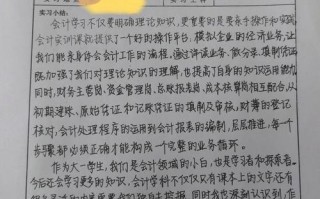 会计学习不仅要明确理论知识，更重要的是要亲手操作和实践
会计实训课就提供了一个好的操作平台，模拟企业的经济业务，让
我们能亲身体会会计工作的流程，通过读业务、做分录、填制凭证
既加强了我们对理论知识的理解，也提高了自身的知识运用能力
同时，财务主管岗、资金管理岗、总账报表岗、成本核算岗相互配合，从
初期建账、原始凭证和记账凭证的填制及审核、对簿的登记
核对，会计处理程序的运用到会计报表的编制，层层推进，每一个
步骤都必须正确才能构成一个完整的业务循环。
作为大一学生，我们是会计领域的小白，也是学习者和探索者。
今后还会学习更多的知识，会计学科不仅仅只有课本上的文字还有
同时我也深刻认识到，作